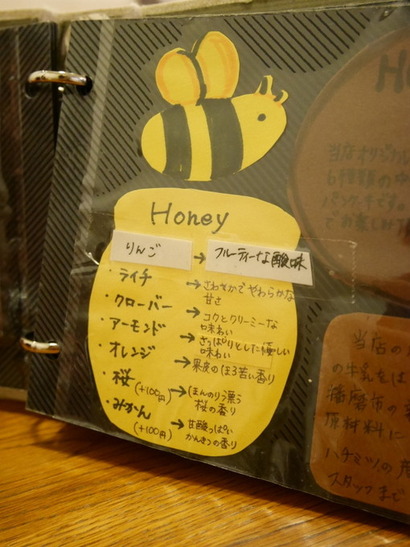 Honey
りんご → フルーティーな酸味
・ライチ → さわやかでやわらかな
甘さ
・クローバー → コクとクリーミーな
味わい
・アーモンド → さっぱりとした優しい
味わい
・オレンジ → 果皮のほろ苦い香り
・桜(+100円) → ほんのり漂う
桜の香り
・みかん → 甘酸っぱい
(+100円) かんきつの香り
当店オリジナル
6種類の
パンケーキ
でお楽しみ
当店の
の牛乳を
播磨
原材料に
ハチミツの
スタッフまで